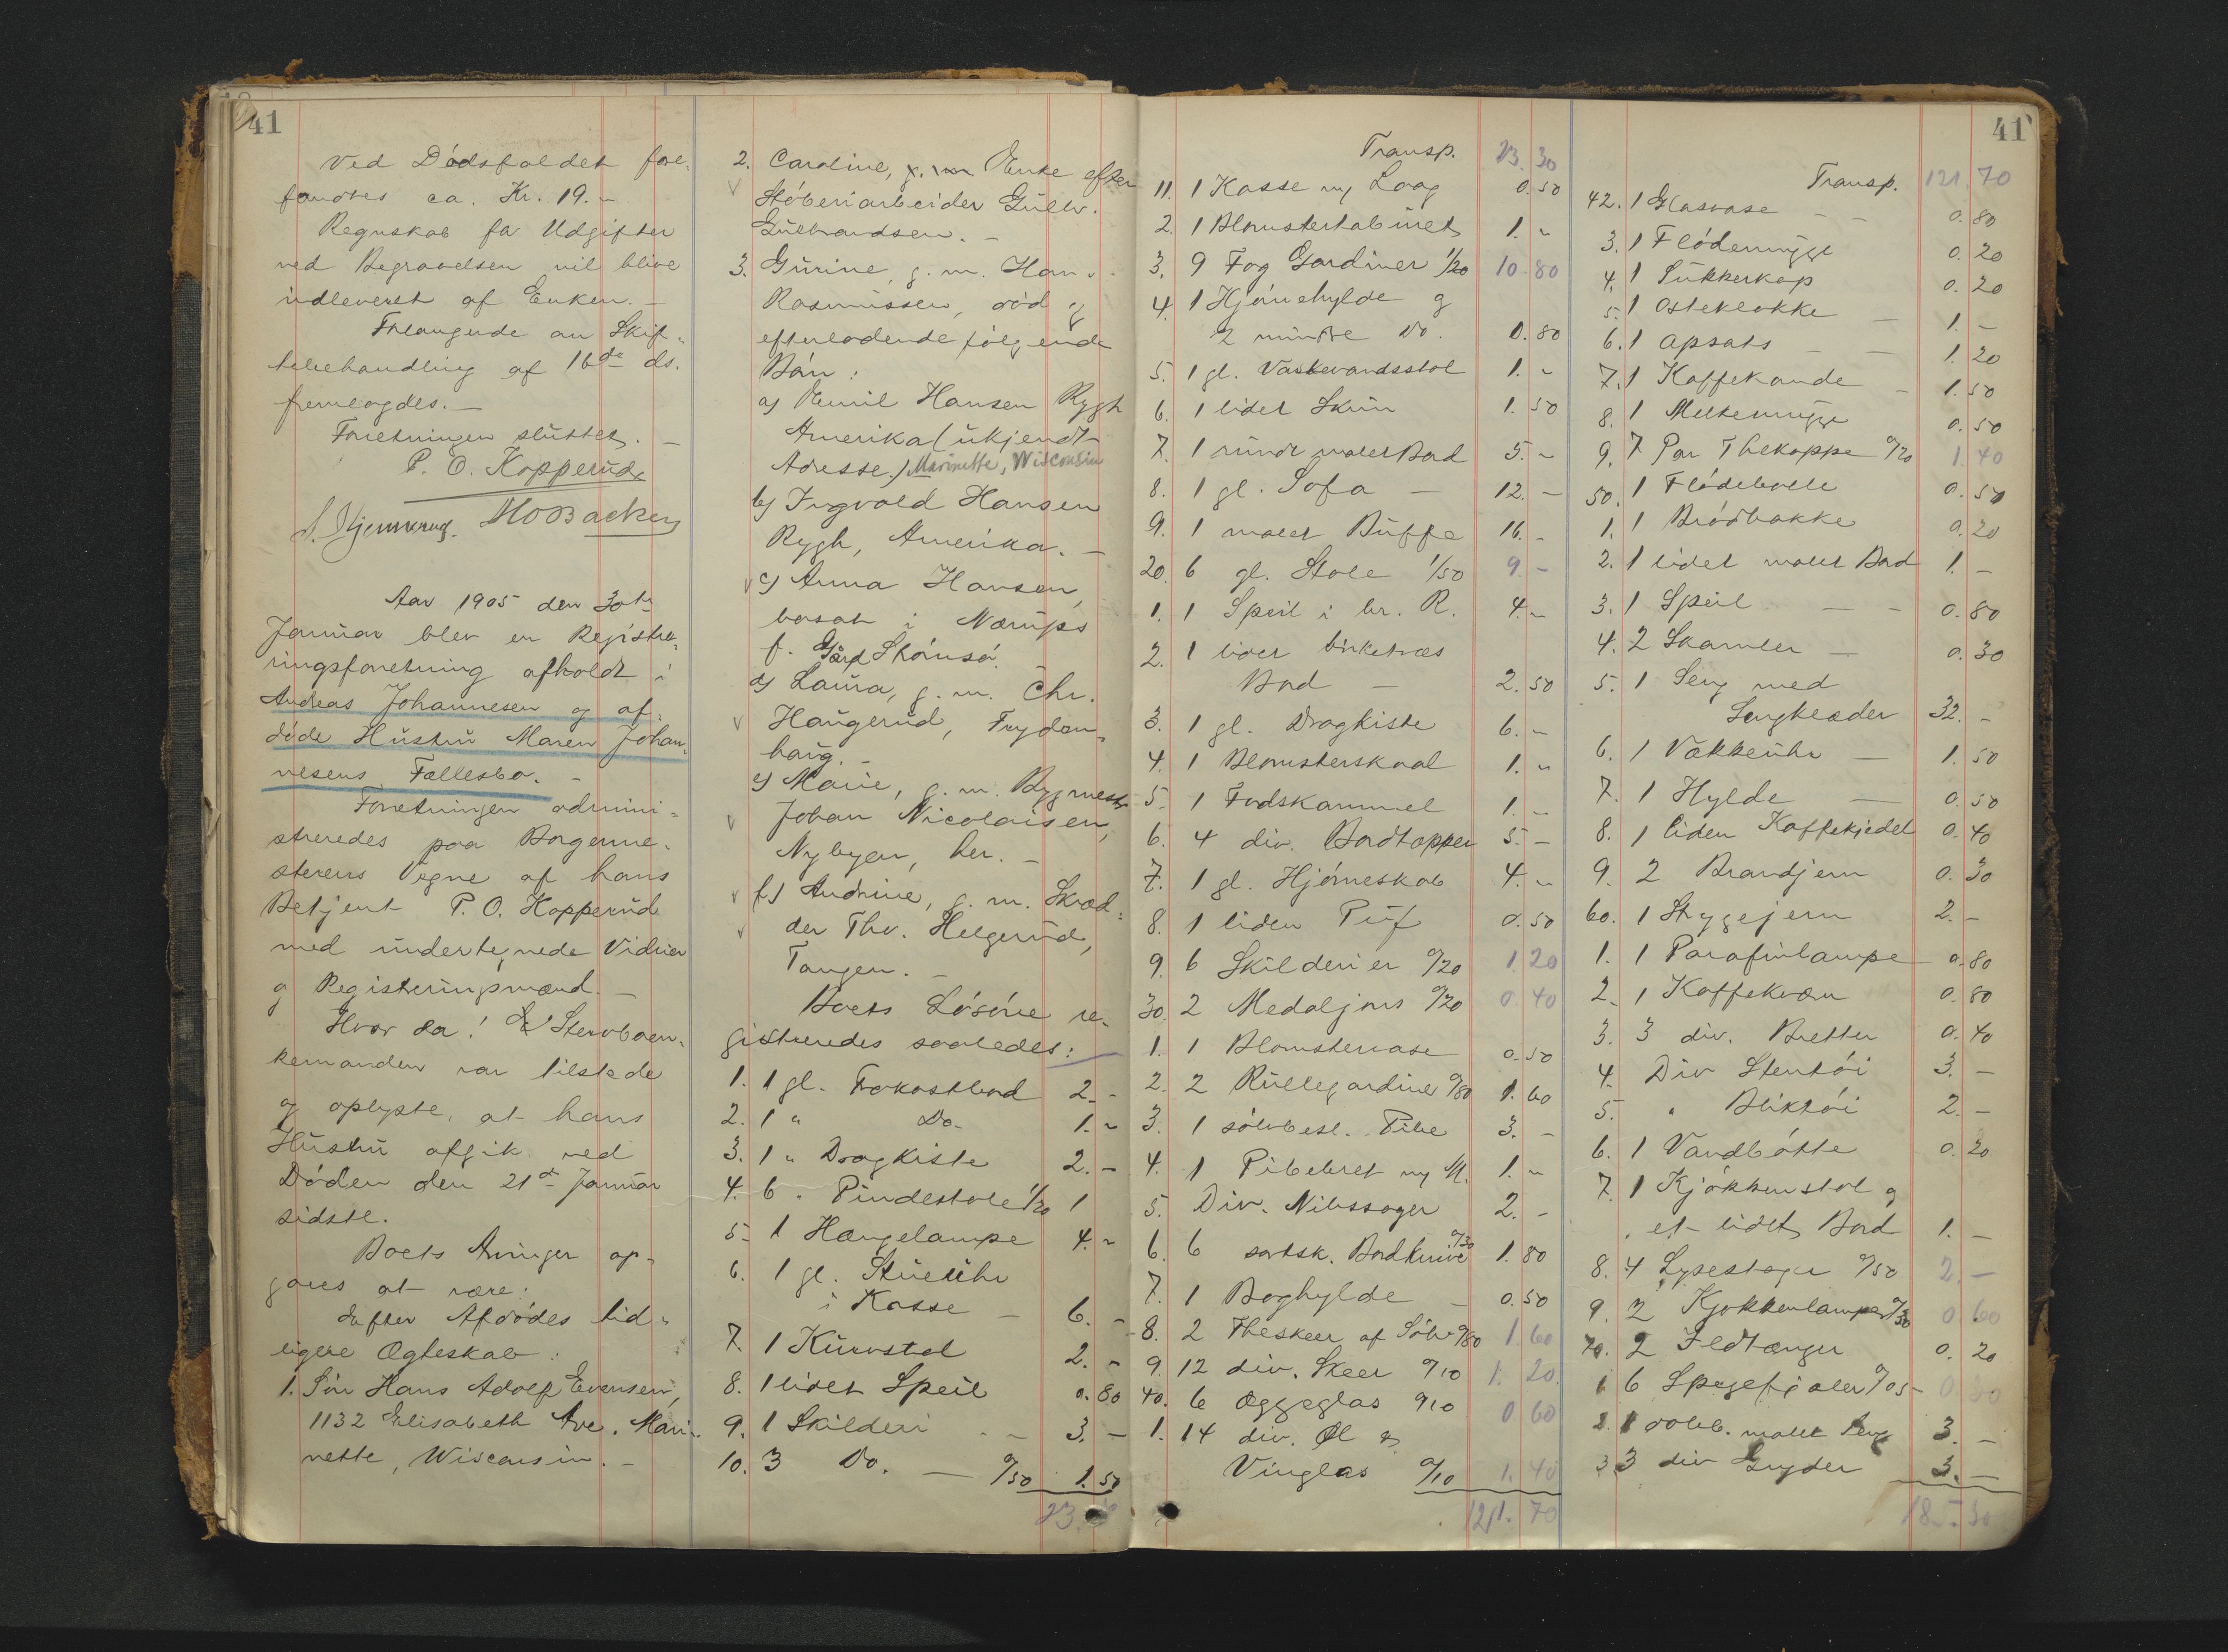 41
Ved Dødsfaldet fore-
fandtes ca. Kr. 19.-
Regnskab for Udgifter
ved Begravelsen vil blive
indleveret af Enken.-
Forlangende om Skif-
tebehandling af 16de ds.
fremlagdes.-
Forretningen sluttet.-
P. O. Kopperud
Aar 1905 den 30te
Januar blev en Registre-
ringsforretning afholdt i
Andreas Johannesen og af-
døde Hustru Maren Johan-
nesens Fællesbo.-
Forretningen admini-
streredes paa Borgerme-
sterens Vegne af hans
Betjent P. O. Kopperud
med undertegnede Vidner
og Registeringsmænd.-
Hvor da! Stervboen-
kemanden var tilstede
og oplyste, at hans
Hustru afgik ved
Døden den 21de Januar
sidste.
Boets Arvinger op-
gaves at være:
Efter Afdødes tid-
ligere Ægteskab:
1. Søn Hans Adolf Evensen,
1132 Elisabeth Ave. Mari-
nette, Wisconsin.-
2. Caroline, Enke efter
Støberiarbeider Gulbr.
Gulbrandsen.-
3. Gurine, g. m. Hans
Rasmussen, død og
efterladende følgende
Børn:
a) Emil Hansen Rygh
Amerika (ukjendt
Adresse.) Marinette, Wisconsin
b) Ingvald Hansen
Rygh, Amerika.-
c) Anna Hansen,
bosat i Nærups
f. Gård Strømsø.
d) Laura, g. m. Chr.
Haugerud, Frydan-
haug.-
e) Marie, g. m. Bygmester
Johan Nicolaisen,
Nybyen, her.-
f) Andrine, g. m. Skræd-
der Thv. Helgerud,
Tangen.-
Boets Løsøre re-
gistreredes saaledes:
1. 1 gl. Frokostbord 2.-
2. 1 " Do. 1.-
3. 1 " Dragkiste 2.-
4. 6 " Pindestole 1/20 1
5. 1 Hængelampe 4.-
6. 1 gl. Stueuhr
i Kasse - 6.-
7. 1 Kurvstol 2.-
8. 1 lidet Speil 0.80
9. 1 Skilderi - - 3.-
10. 3 Do. - 0/50 1.50
23.
Transp. 23.30
11. 1 Kasse m/ Laag 0.50
2. 1 Blomstertabûret 1.-
3. 9 Fag Gardiner 1/20 10.80
4. 1 Hjørnehylde og
2 mindre Do. 0.80
5. 1 gl. Vaskevandsstol 1.-
6. 1 lidet Skrin 1.50
7. 1 rundt malet Bord 5.-
8. 1 gl. Sofa - 12.-
9. 1 malet Büffe 16.-
20. 6 gl. Stole 1/50 9.-
1. 1 Speil i br. R. 4.-
2. 1 lidet birketræs
Bord - 2.50
3. 1 gl. Dragkiste 6.-
4. 1 Blomsterskaal 1.-
5. 1 Fodskammel 1.-
6. 4 div. Bordtæpper 5.-
7. 1 gl. Hjørneskab 4.-
8. 1 liden Puf 0.50
9. 6 Skilderier 0/20 1.20
30. 2 Medaljons 0/20 0.40
1. 1 Blomstervase 0.50
2. 2 Rullegardiner 0/80 1.60
3. 1 sølvbesl. Pibe 3.-
4. 1 Pibebret m/ M. 1.-
5. Div. Nibssager 2.-
6. 6 sortsk. Bordknive 0/30 1.80
7. 1 Boghylde - 0.50
8. 2 Theskeer af Sølv 0/80 1.60
9. 12 div. Skeer 0/10 1.20
40. 6 Æggeglas 0/10 0.60
1. 14 div. Øl &
Vinglas 0/10 1.40
121.70
41
Transp. 121.70
42. 1 Glasvase - - 0.80
3. 1 Flødemugge 0.20
4. 1 Sukkerkop 0.20
5. 1 Osteklokke - 1.-
6. 1 Opsats - - 1.20
7. 1 Kaffekande - 1.50
8. 1 Melkemugge 0.50
9. 7 Par Thekoppe 0/20 1.40
50. 1 Flødebolle 0.50
1. 1 Brødbakke 0.20
2. 1 lidet malet Bord 1.-
3. 1 Speil - - 0.80
4. 2 Skamler - 0.30
5. 1 Seng med
Sengklæder 32.-
6. 1 Vækkeuhr - 1.50
7. 1 Hylde - 0.50
8. 1 liden Kaffekjedel 0.40
9. 2 Brandjern 0.30
60. 1 Strygejern 2.-
1. 1 Parafinlampe 0.80
2. 1 Kaffekværn 0.80
3. 3 div. Bretter 0.40
4. Div Stentøi 3.-
5. " Bliktøi 2.-
6. 1 Vandbøtte 0.20
7. 1 Kjøkkenstol og
et lidet Bord 1.-
8. 4 Lysestager 0/50 2.-
9. 2 Kjøkkenlamper 0/30 0.60
70. 2 Ildtænger 0.20
1 6 Spegefjøler 0/05 0.30
2. 1 dobb. malet Seng 3.-
3 3 div Gryder 3.-
185.30